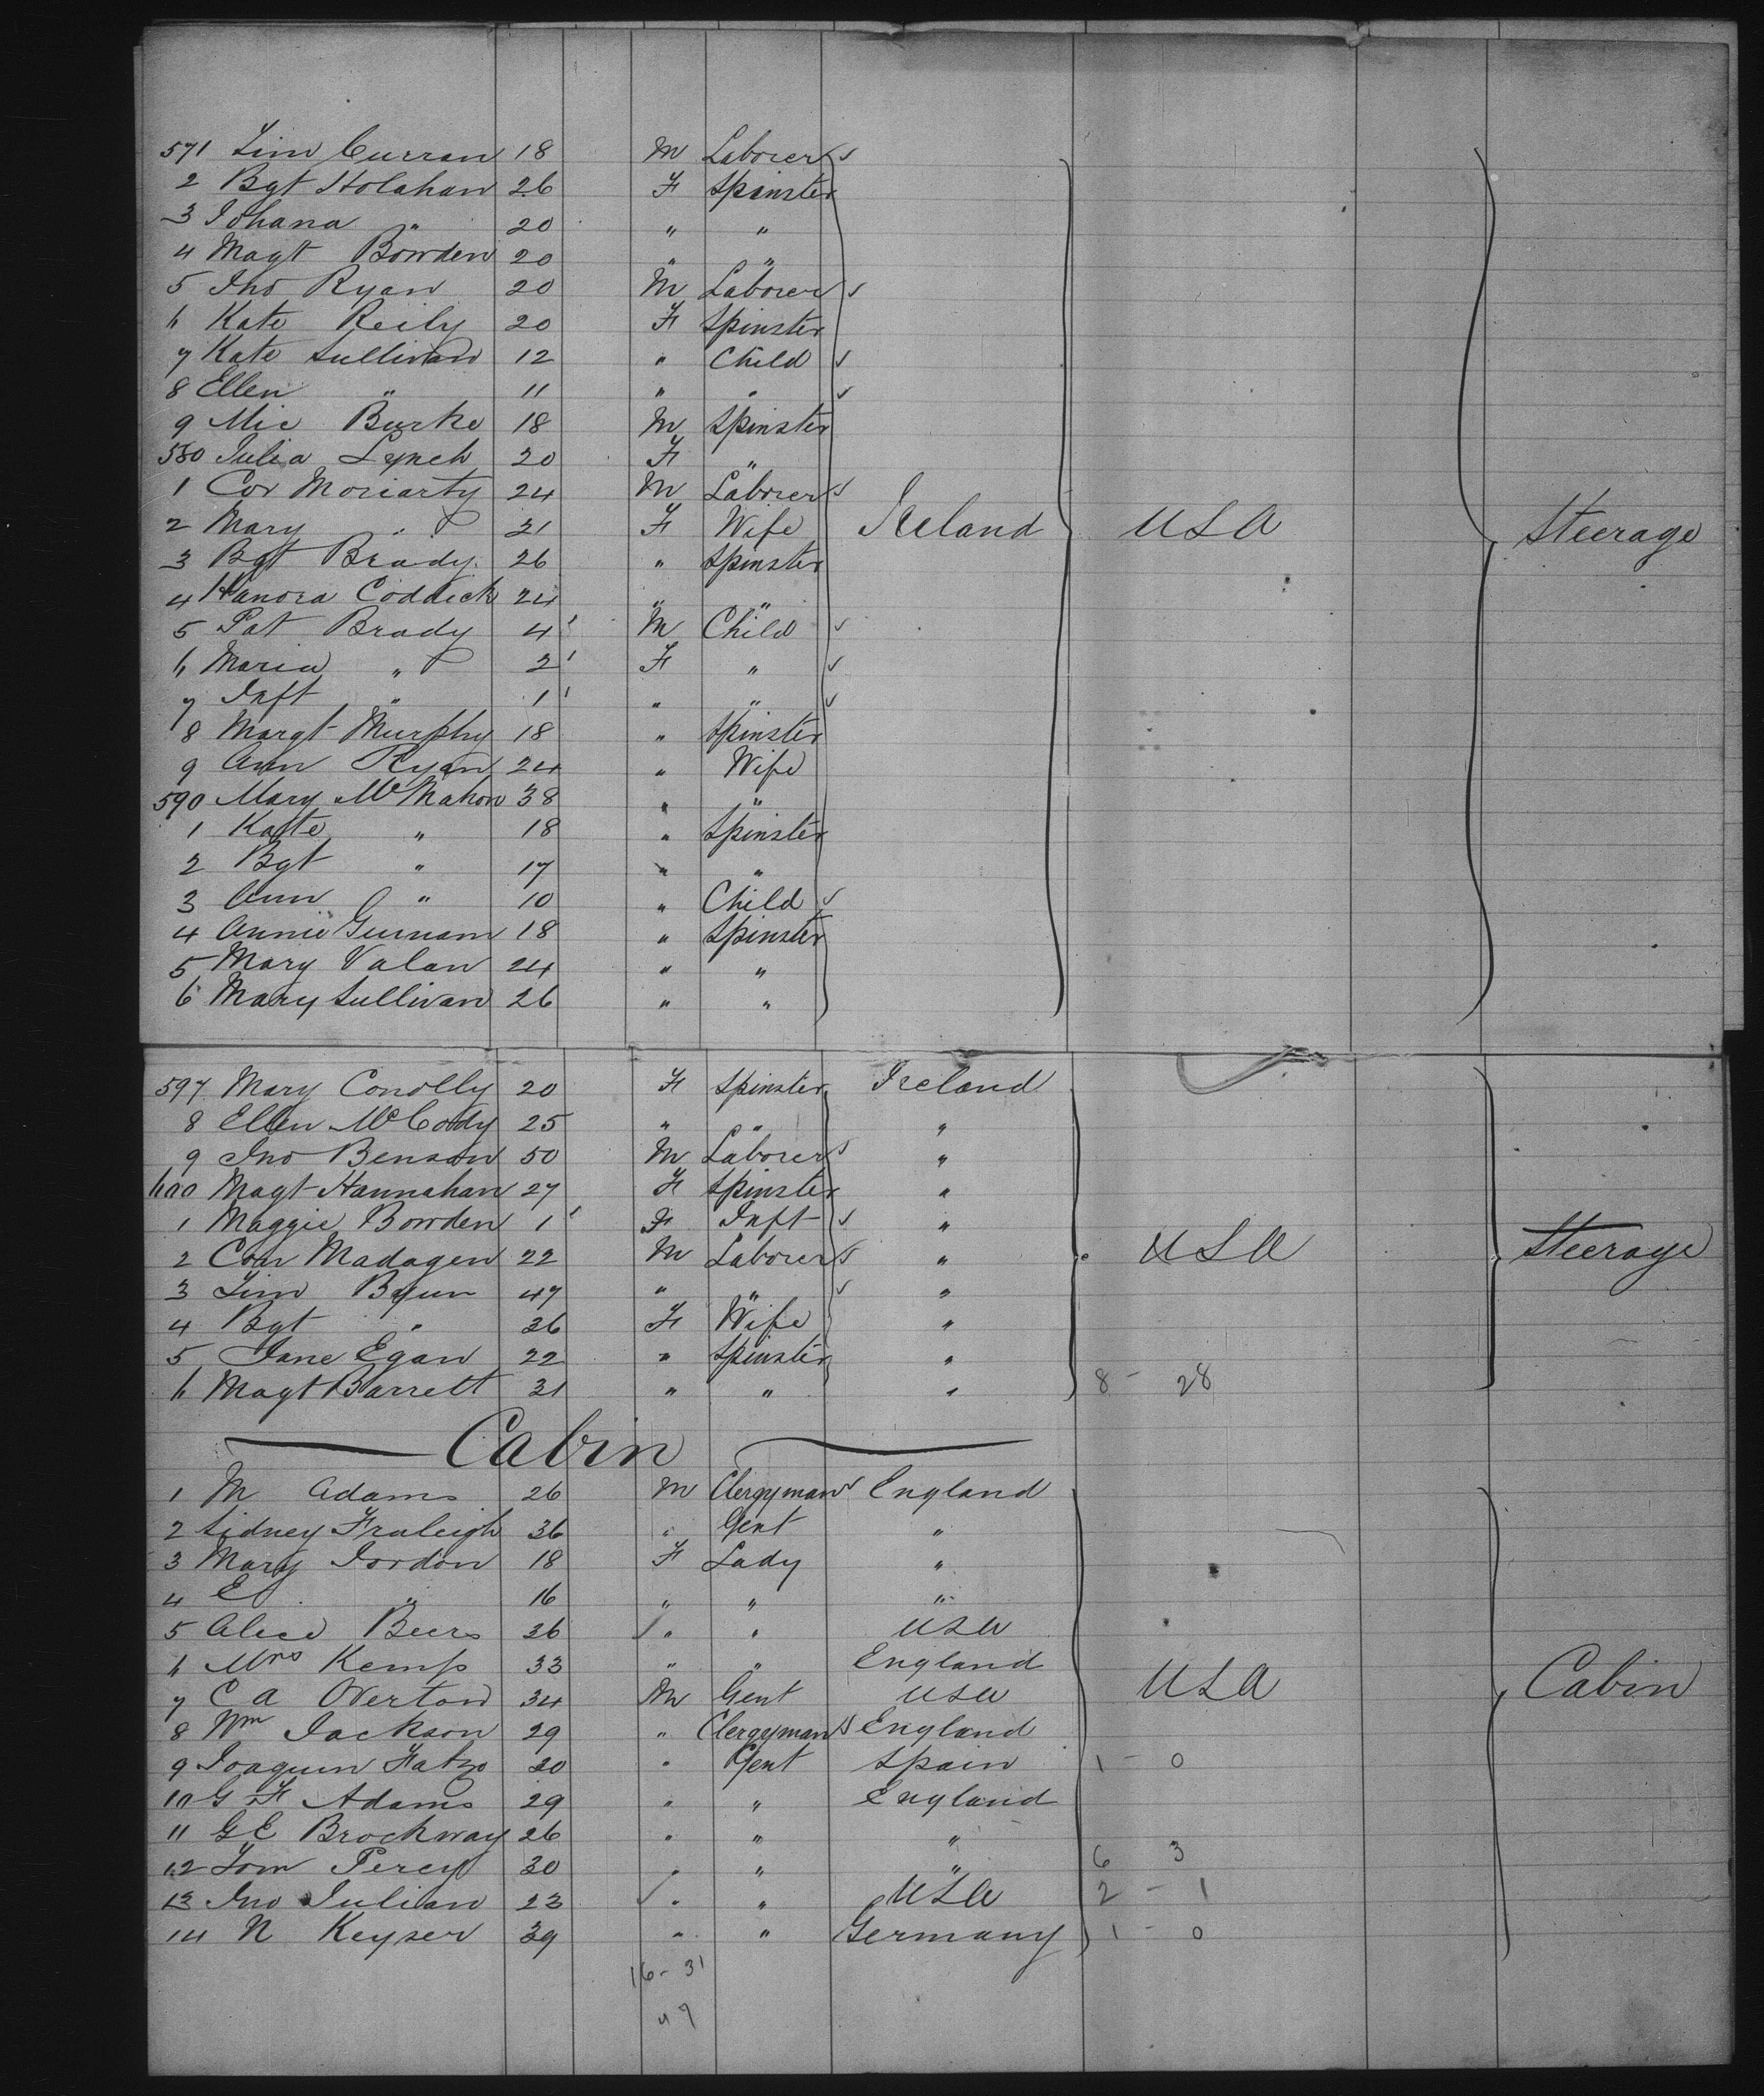 571 Tim Curran 18 M Laborer ✓
2 Bgt Holahan 26 F Spinster
3 Johana " 20 " "
4 Magt Bowden 20 " "
5 Jno Ryan 20 M Laborer ✓
6 Kate Reily 20 F Spinster
7 Kate Sullivan 12 " Child ✓
8 Ellen " 11 " " ✓
9 Mic Burke 18 M Spinster
580 Julia Lynch 20 F "
1 Cor Moriarty 24 M Laborer ✓
2 Mary " 21 F Wife Ireland USA Steerage
3 Bgt Brady 26 " Spinster
4 Hanora Coddick 24 " "
5 Pat Brady 4 M Child ✓
6 Maria " 2 F " ✓
7 Inft " 1 " " ✓
8 Margt Murphy 18 " Spinster
9 Ann Ryan 24 " Wife
590 Mary McMahon 38 " "
1 Kate " 18 " Spinster
2 Bgt " 17 " "
3 Ann " 10 " Child ✓
4 Annie 18 " Spinster
5 Mary Valan 24 " "
6 Mary Sullivan 26 " "
597 Mary Conolly 20 F Spinster Ireland
8 Ellen McCody 25 " " "
9 Jno Benson 50 M Laborer ✓ "
600 Magt Hannahan 27 F Spinster "
1 Maggie Bowden 1 F Inft ✓ "
2 Con Madagen 22 M Laborer ✓ " USA Steerage
3 Tim 47 " " ✓ "
4 Bgt " 36 F Wife "
5 Jane Egan 22 " Spinster "
6 Magt Barrett 31 " " " 8 - 28
Cabin
1 M Adams 26 M Clergyman England
2 Sidney Fraleigh 36 " Gent "
3 Mary Jordon 18 F Lady "
4 E " 16 " " "
5 Alice Beers 36 ✓ " " USA
6 Mrs Kemp 33 " " England
7 C A Overton 34 M Gent USA USA Cabin
8 Wm Jackson 29 " Clergyman England
9 Joaquin 20 " Gent Spain 1 - 0
10 G F Adams 29 " " England
11 G E Brockway 26 " " "
12 Tom Percy 30 " " " 6 3
13 Jno Julian 23 ✓ " " USA 2 - 1
14 N Keyser 39 " " Germany 1 - 0
16 - 31
47